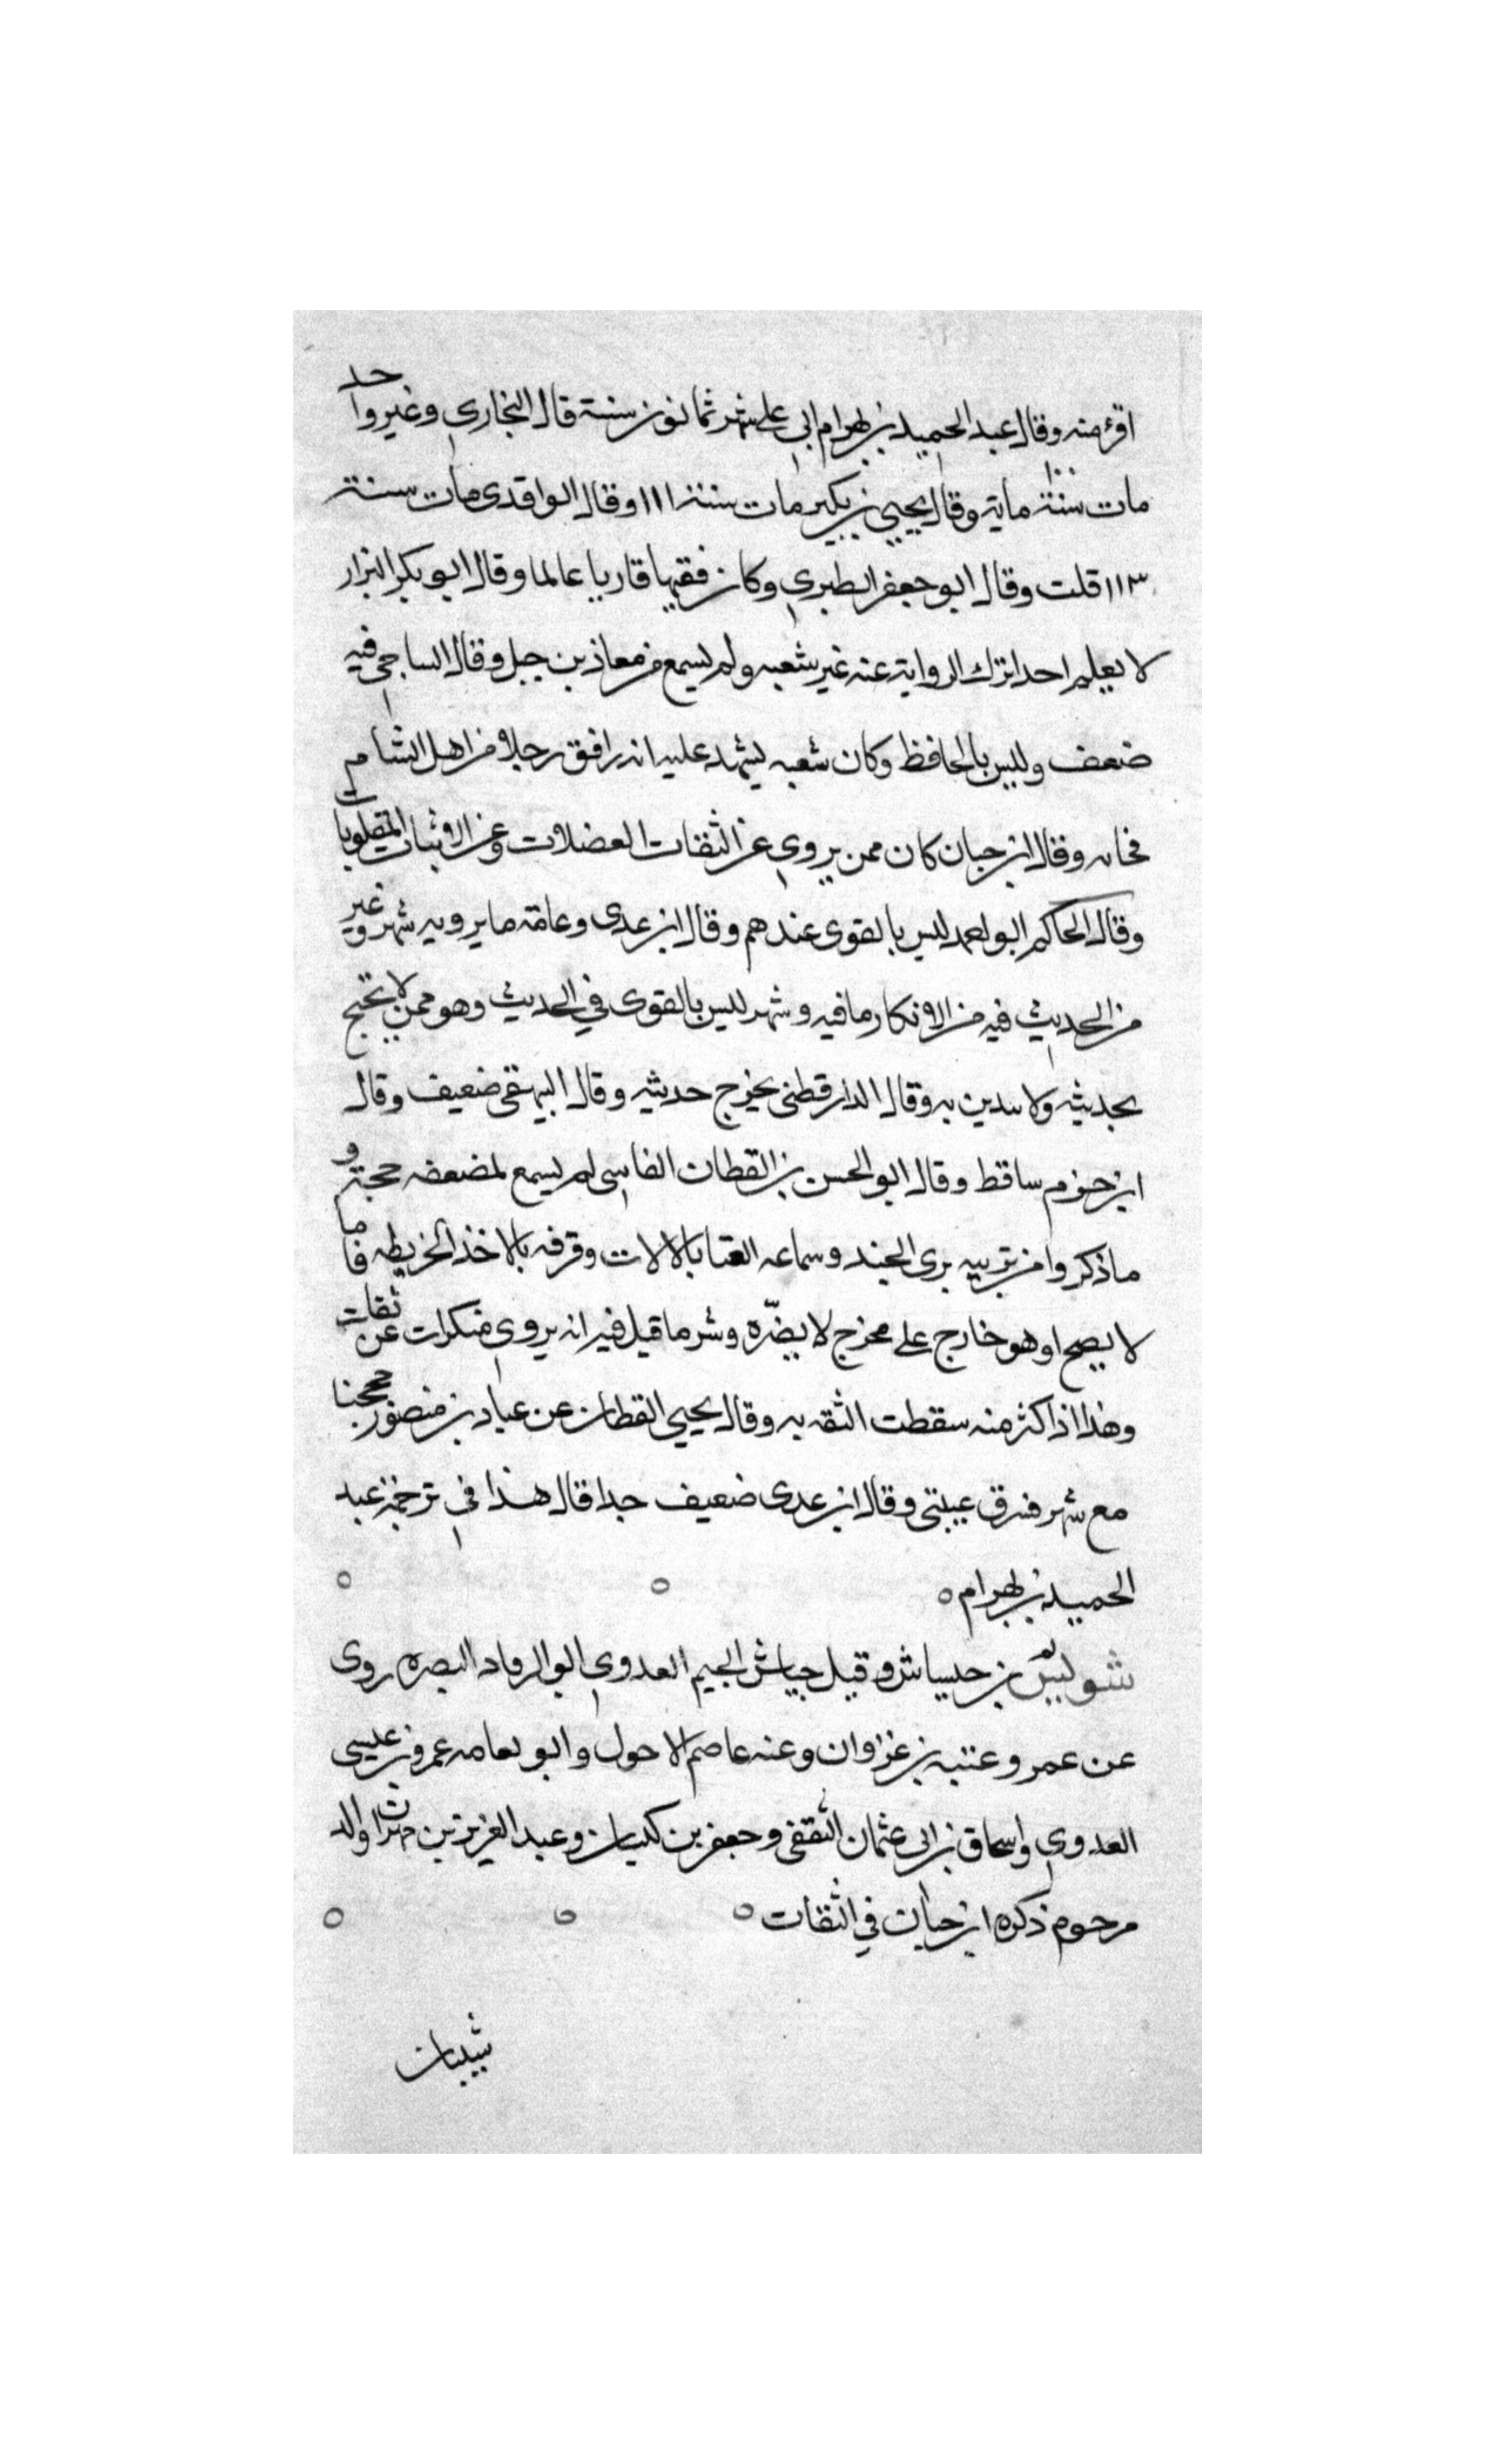 اقرء منه وقال عبد الحميد بن بهرام اتى على شهر ثمانون سنة قال البخاري وغير واحد
مات سنة ١٠٠ ماية وقال يحيى بن بكير مات سنة ١١١ وقال الواقدى مات سنة
١١٣ قلت وقال ابو جعفر الطبري وكان فقيها قاريا عالما وقال ابو بكر البزار
لا يعلم احدا ترك الرواية عنه غير شعبه ولم يسمع من معاذ بن جبل وقال الساجي فيه
ضعف وليس بالحافظ وكان شعبه يشهد عليه انه رافق رجلا من اهل الشام
فخانه وقال ابن حبان كان ممن يروي عن الثقات العضلات وعن الاثبات المقلوبات
وقال الحاكم ابو احمد ليس بالقوى عندهم وقال ابن عدى وعامة ما يرويه شهر وغير
من الحديث فيه من الانكار ما فيه وشهر ليس بالقوى في الحديث وهو ممن لا يحتج
بحديثه ولا يتدين به وقال الدارقطنى يخرج حديثه وقال البيهقى ضعيف وقال
ابن حزم ساقط وقال ابو الحسن بن القطان الفاسى لم يسمع لمضعفه حجة و
ما ذكروا من تزييه بزى الجند وسماعه الغنا بالالات وقرفه بالاخذ الخريطه فاما
لا يصح او هو خارج على مخرج لا يضرّه وشر ما قيل فيه انه يروي منكرات عن ثقات
وهذا اذا كثر منه سقطت الثقه به وقال يحيى القطان عن عباد بن منصور حججنا
مع شهر فسرق عيبتى وقال ابن عدى ضعيف جدا قال هذا في ترجمة عبد
الحميد بن بهرام
شويس بن حياش وقيل جياش الجيم العدوي ابو الرقاد البصره روى
عن عمر وعتبه بن غزوان وعنه عاصم الاحول وابو نعامه عمرو بن عيسى
العدوي واسحاق بن ابى عثمان الثقفى وجعفر بن كيسان وعبد العزيز بن مهران والد
مرحوم ذكره ابن حبان في الثقات
شيبان